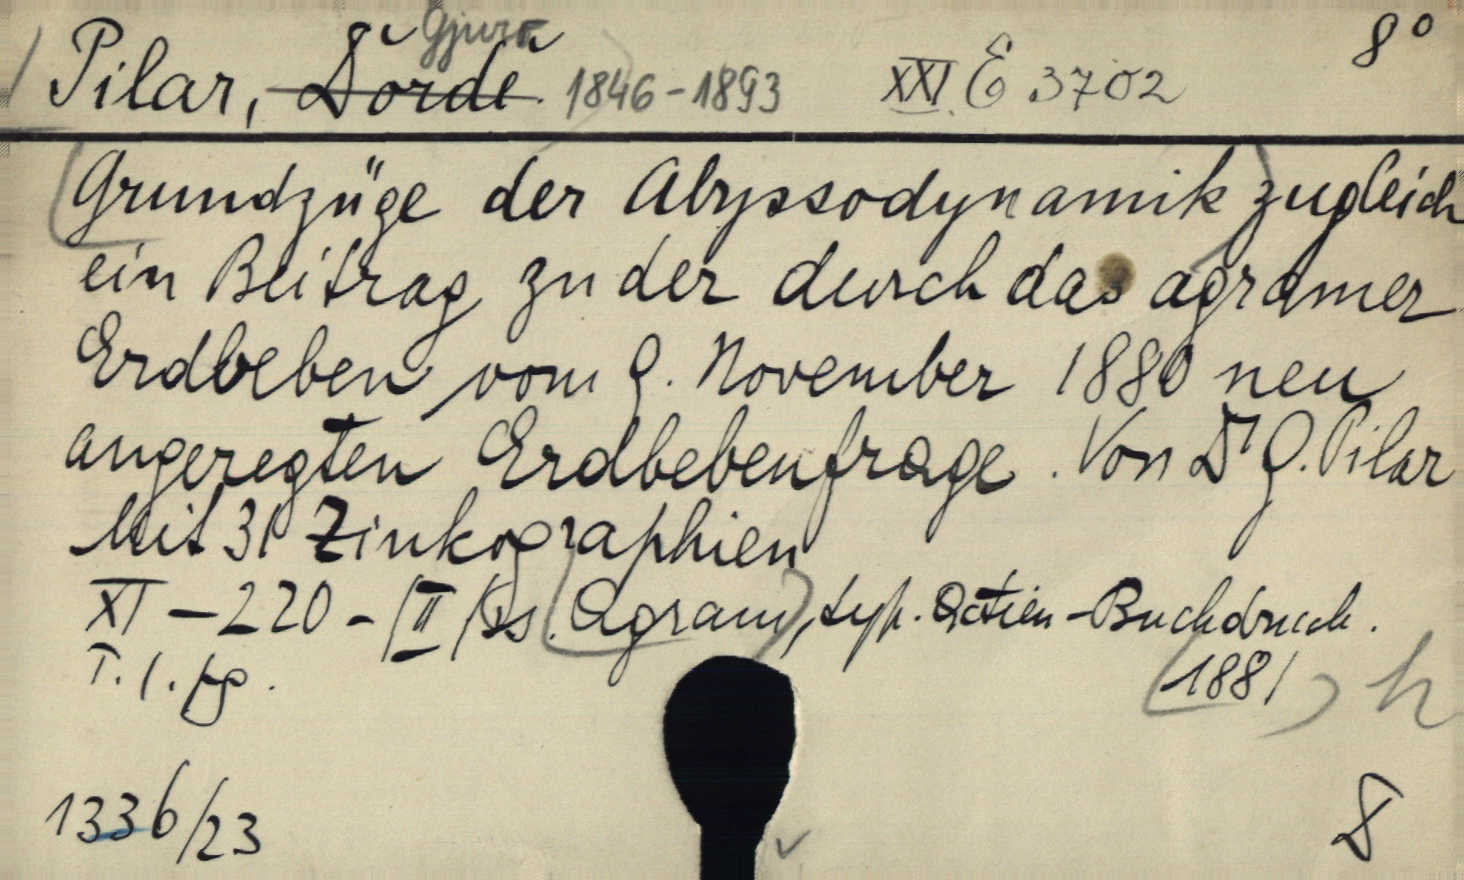 Gjuro
8°
Pilar, Đorđe 1846-1893 XXI E 3702
Grundzüge der Abyssodynamik zugleich
ein Beitrag zu der durch das agramer
Erdbeben vom 9. November 1880 neu
angeregten Erdbebenfrage. Von Dr G. Pilar
Mit 31 Zinkographien
XI-220-/II/ Ss. Agram, typ. Actien-Buchdruck.
T. 1. fg. 1881 h
1336/23